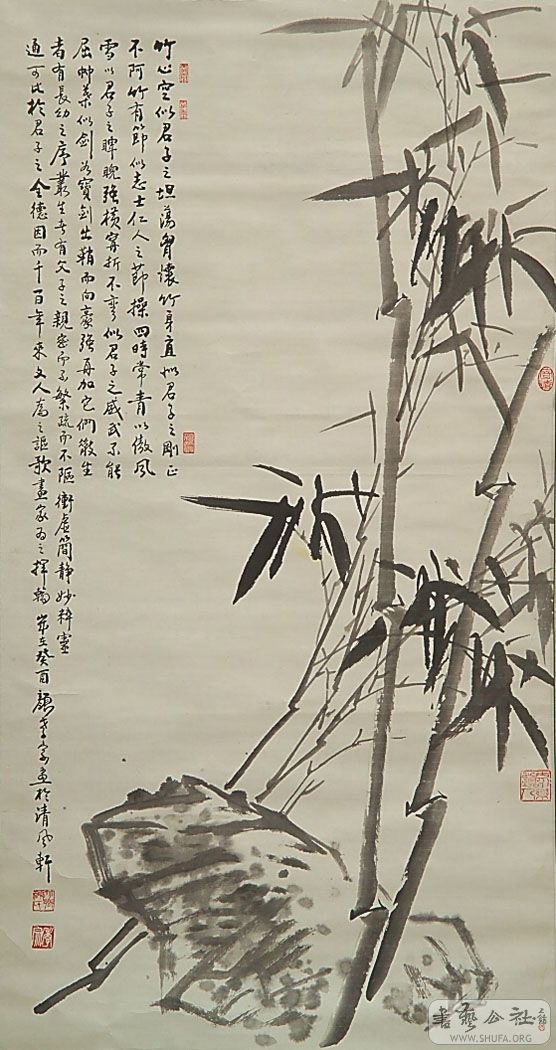 竹心空似君子之坦蕩胷懷竹身直似君子之剛正
不阿竹有節似志士仁人之節操四時常青以傲風
雪以君子之睥睨强橫寧折不彎似君子之威武不能
屈柳葉似劍为寶劍出鞘而向豪强再加它們散生
者有長幼之序叢生者有父子之親密而不繁疏而不陋衝虛簡静妙粹靈
通可比於君子之全德因而千百年来文人為之謳歌畫家为之揮翰 嵗在癸酉 於清風軒
書藝公社
WWW.SHUFA.ORG